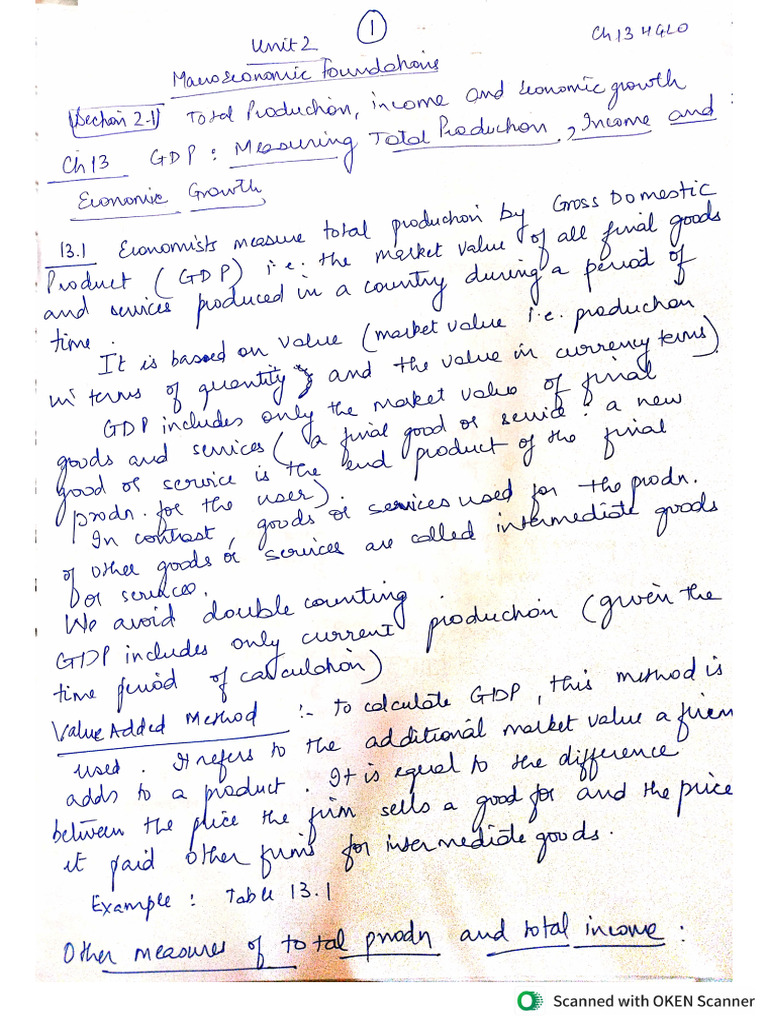 1
Unit 2
Ch 13 HGLO
Macroeconomic Foundations
Section 2.1 Total Production, income and economic growth
Ch 13 GDP: Measuring Total Production, Income and
Economic Growth
13.1 Economists measure total production by Gross Domestic
Product (GDP) i.e. the market value of all final goods
and services produced in a country during a period of
time.
It is based on value (market value i.e. production
in terms of quantity and the value in currency terms)
GDP includes only the market value of final
goods and services (a final good or service: a new
good or service is the end product of the final
prodn. for the user).
In contrast, goods or services used for the prodn.
of other goods or services are called intermediate goods
or services.
We avoid double counting
GDP includes only current production (given the
time period of calculation)
Value Added Method :- To calculate GDP, this method is
used. It refers to the additional market value a firm
adds to a product. It is equal to the difference
between the price the firm sells a good for and the price
it paid other firms for intermediate goods.
Example: Table 13.1
Other measures of total prodn and total income:
Scanned with OKEN Scanner